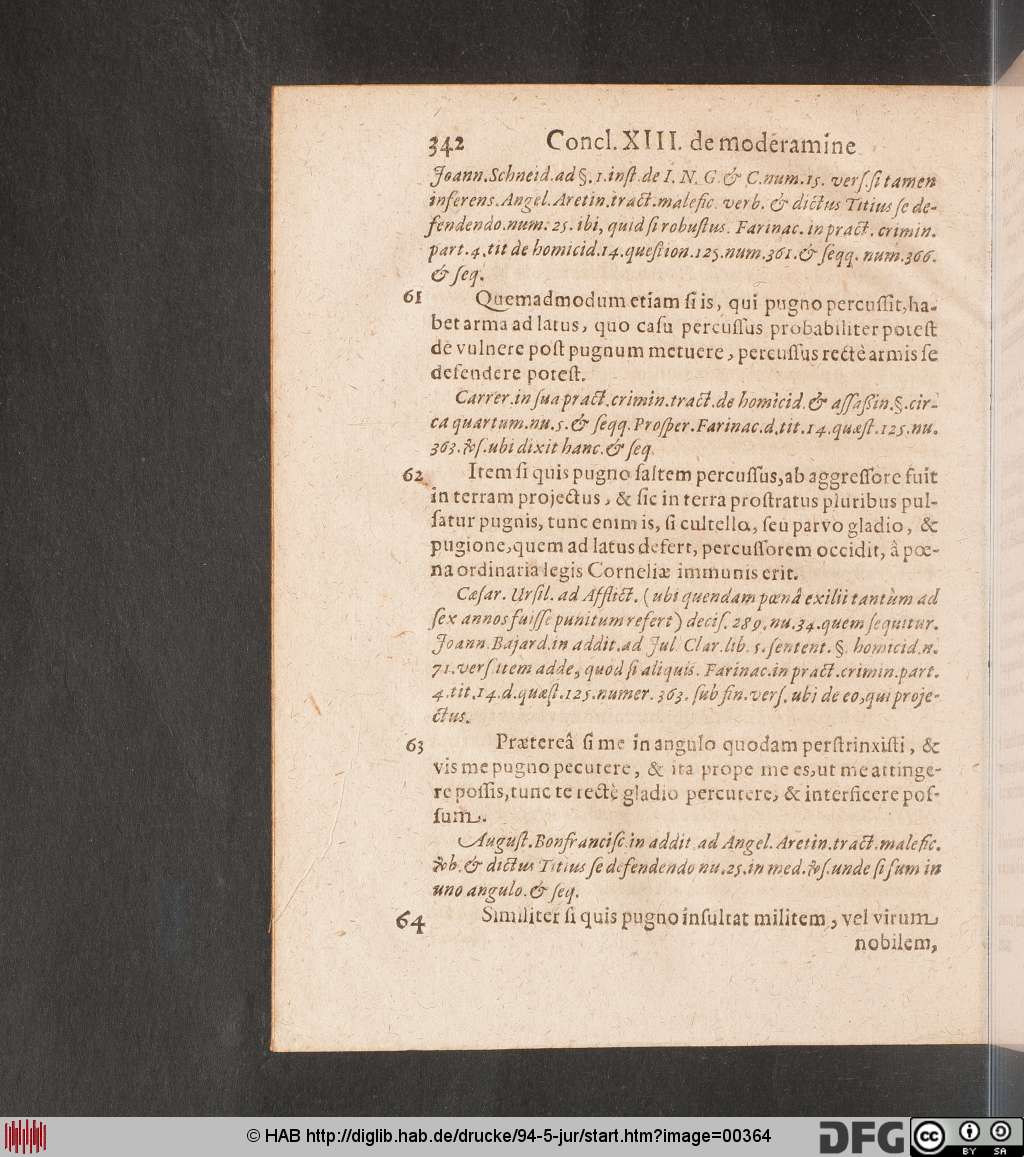 342 Concl. XIII. de moderamine
Joann. Schneid. ad §. 1. inst. de I. N. G. & C. num. 15. vers. si tamen
inferens. Angel. Aretin. tract. malefic. verb. & dictus Titius se de-
fendendo. num. 25. ibi, quid si robustus. Farinac. in pract. crimin.
part. 4. tit de homicid. 14. question. 125. num. 361. & seqq. num. 366.
& seq.
61 Quemadmodum etiam si is, qui pugno percussit, ha-
bet arma ad latus, quo casu percussus probabiliter potest
de vulnere post pugnum metuere, percussus rectè armis se
defendere potest.
Carrer. in sua pract. crimin. tract. de homicid. & assaßin. §. cir-
ca quartum. nu. 5. & seqq. Prosper. Farinac. d. tit. 14. quæst. 125. nu.
363. vs. ubi dixit hanc. & seq.
62 Item si quis pugno saltem percussus, ab aggressore fuit
in terram projectus, & sic in terra prostratus pluribus pul-
satur pugnis, tunc enim is, si cultello, seu parvo gladio, &
pugione, quem ad latus defert, percussorem occidit, â pœ-
na ordinaria legis Corneliæ immunis erit.
Cæsar. Ursil. ad Afflict. (ubi quendam pœnâ exilii tantùm ad
sex annos fuisse punitum refert) decis. 289. nu. 34. quem sequitur.
Joann. Bajard. in addit. ad Jul. Clar. lib. 5. sentent. §. homicid. n.
71. vers. item adde, quod si aliquis. Farinac. in pract. crimin. part.
4. tit. 14. d. quæst. 125. numer. 363. sub fin. vers. ubi de eo, qui proje-
ctus.
63 Prætereâ si me in angulo quodam perstrinxisti, &
vis me pugno pecutere, & ita prope me es, ut me attinge-
re possis, tunc te rectè gladio percutere, & interficere pos-
sum.
August. Bonfrancisc. in addit. ad Angel. Aretin. tract. malefic.
vb. & dictus Titius se defendendo nu. 25. in med. vs. unde si sum in
uno angulo. & seq.
64 Similiter si quis pugno insultat militem, vel virum
nobilem,
© HAB http://diglib.hab.de/drucke/94-5-jur/start.htm?image=00364
DFG
cc
BY SA